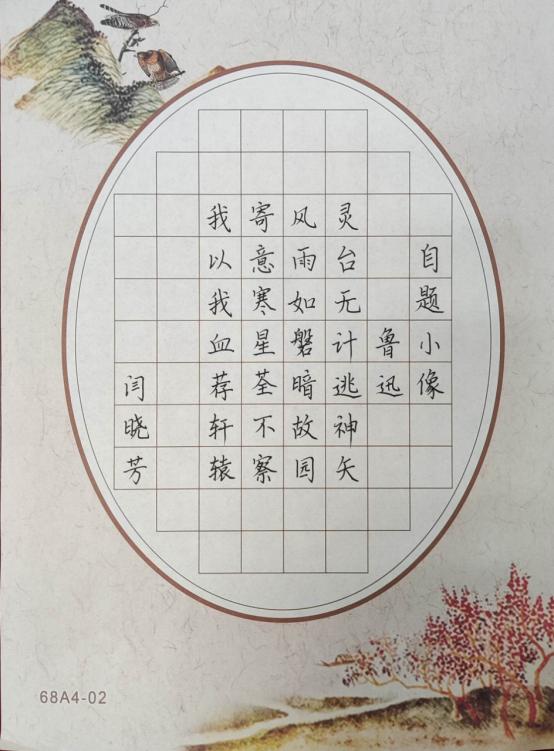 自题小像
鲁迅
灵台无计逃神矢
风雨如磐暗故园
寄意寒星荃不察
我以我血荐轩辕
闫晓芳
68A4-02